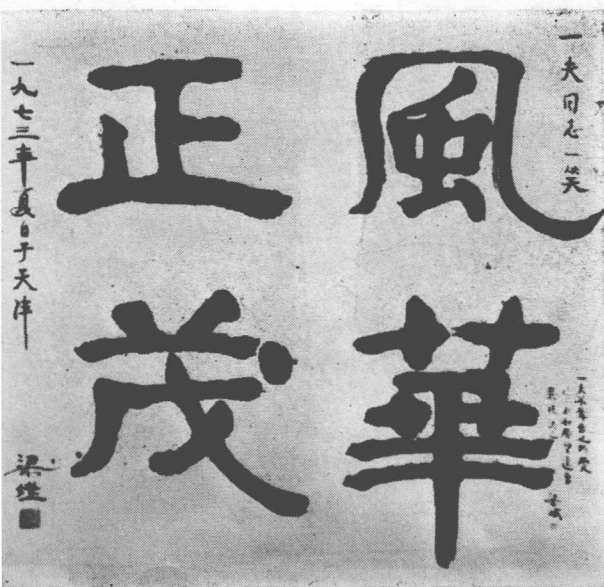 一夫同志一笑
風華
正茂
一九七三年夏日于天津